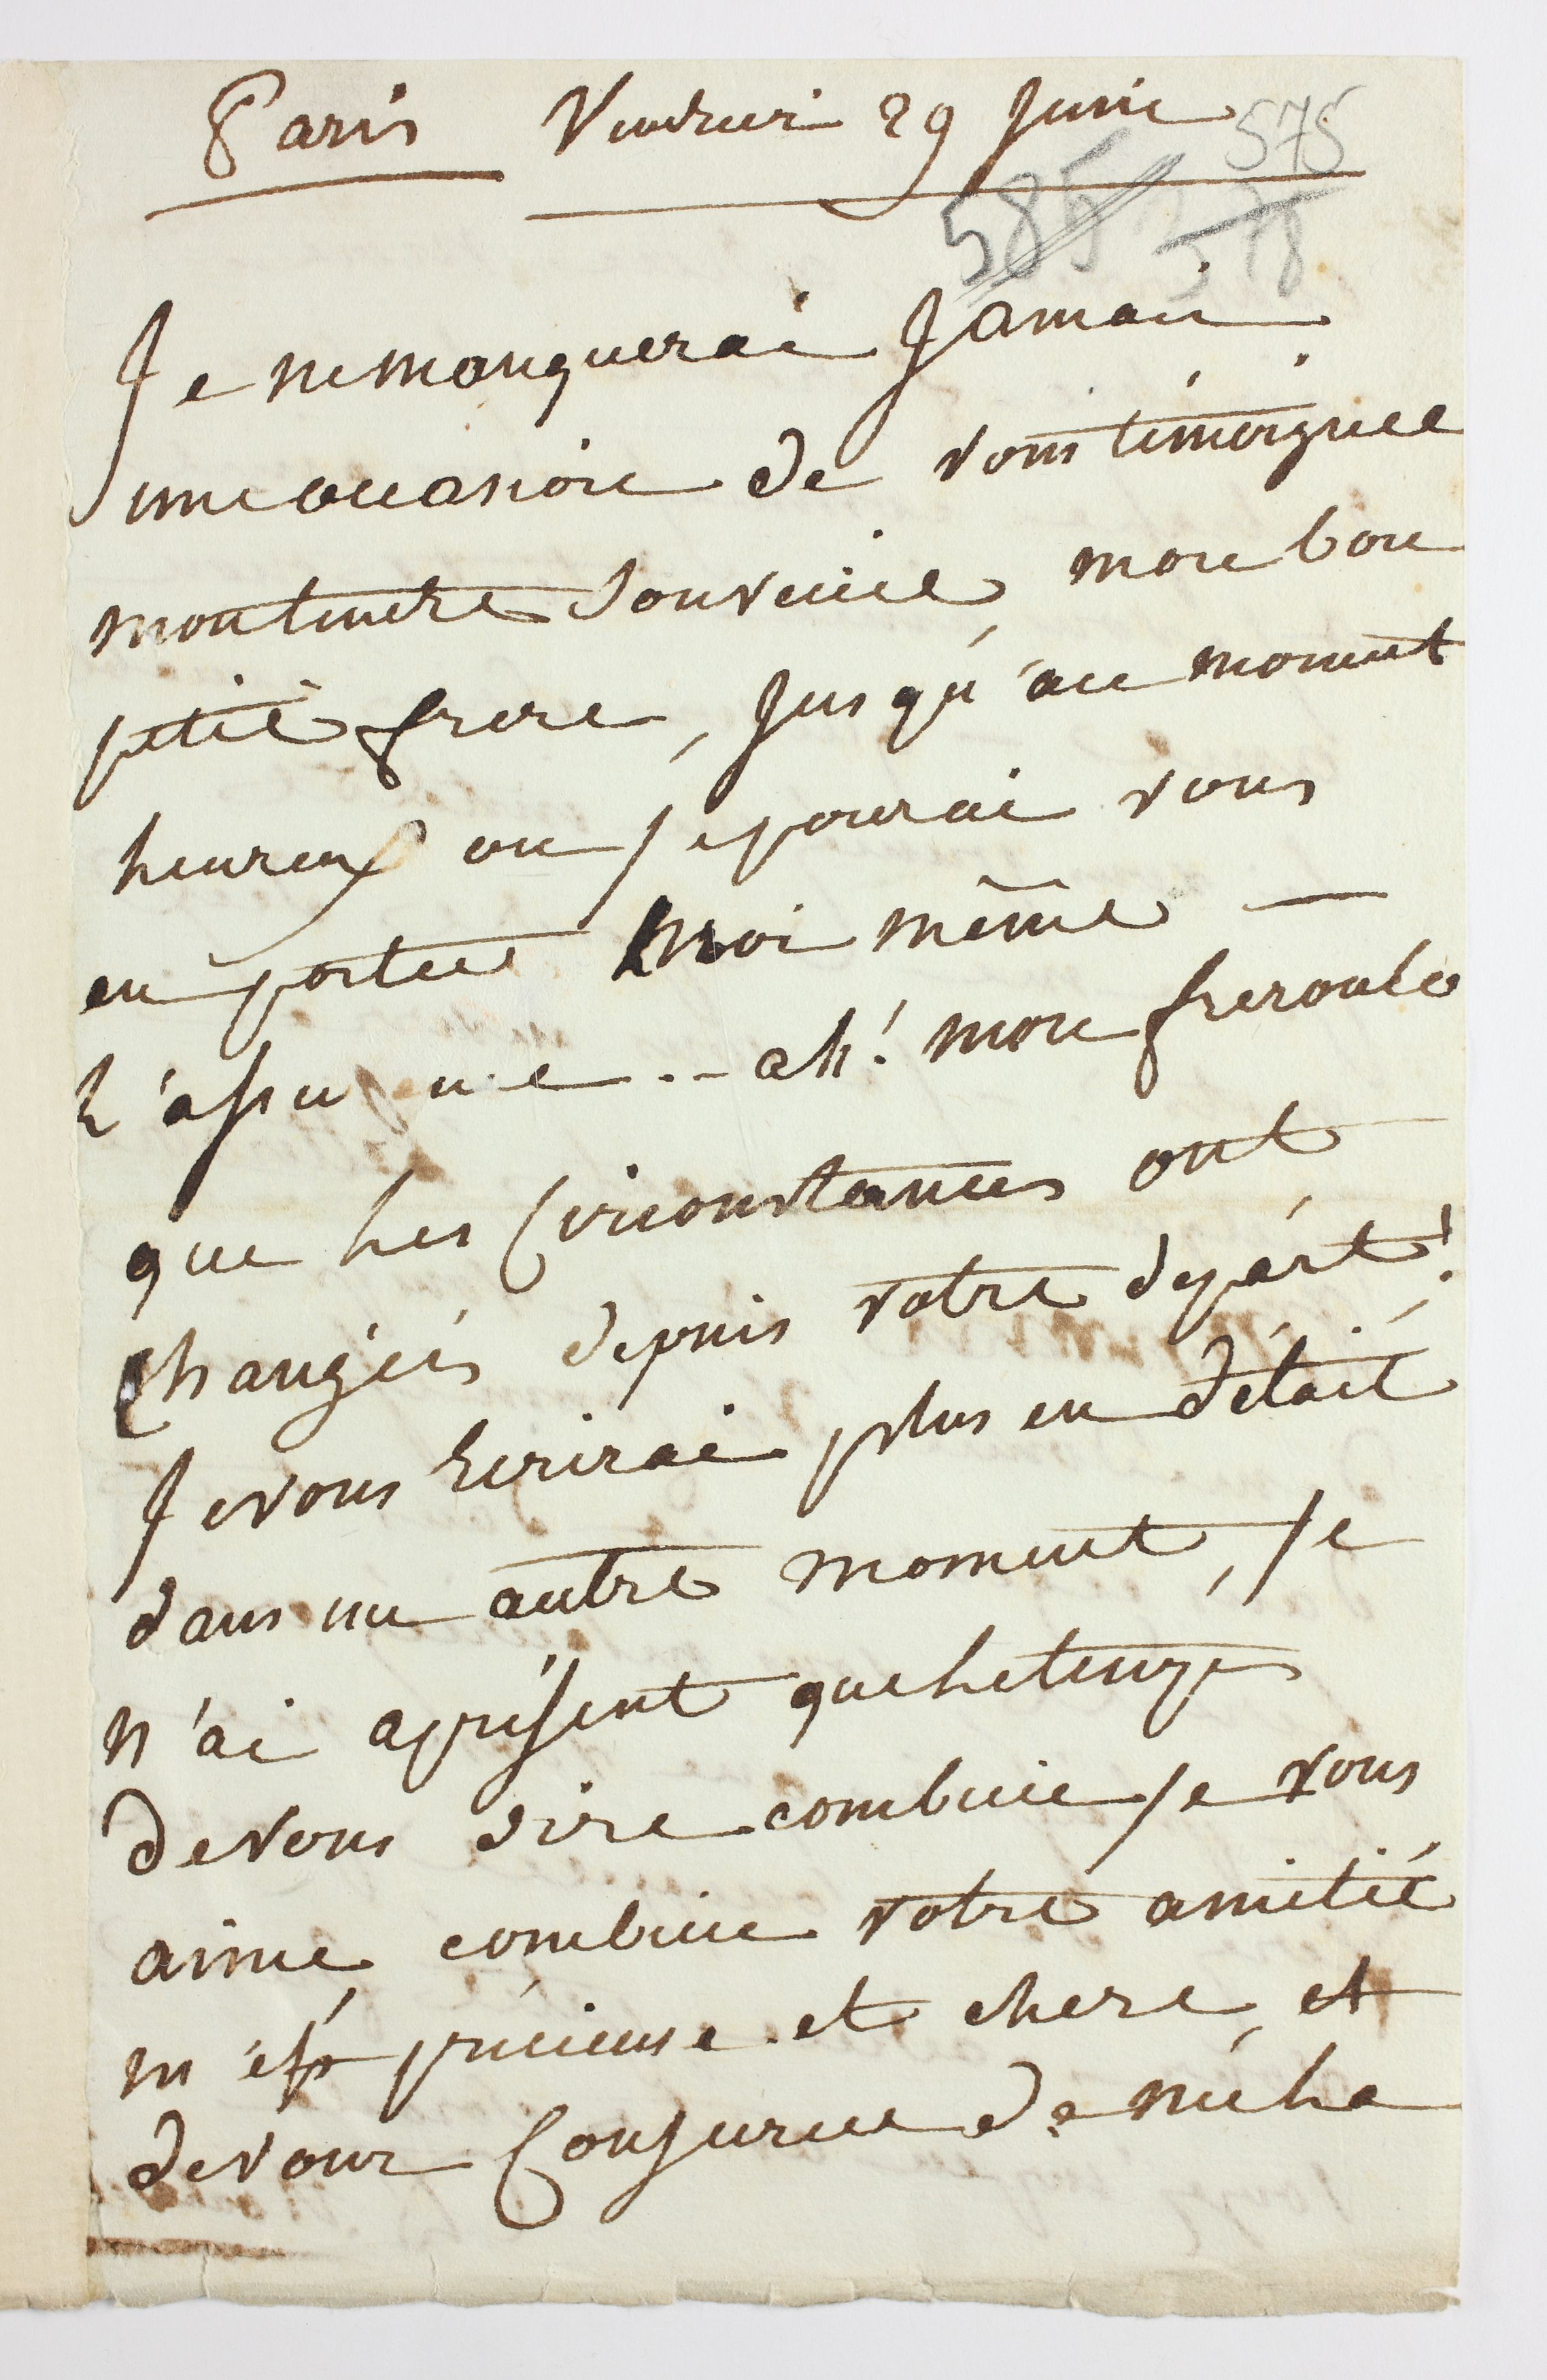 Paris Vendredi 29 Juin 575
585 578
Je ne manquerai Jamais
une occasion de vous témoigner
mon tendre Souvenir, mon bon
petit frere, Jusqu'au moment
heureux ou je pourai vous
en porter moi même —
L'assurance .. ah! mon frere
que les Circonstances ont
Changées depuis votre départ!
Je vous Ecrirai plus en détail
dans un autre moment, je
n'ai aprésent que le temps
de vous dire combien je vous
aime, combien votre amitié
m'est précieuse et chere, et
de vour Conjurer de me la